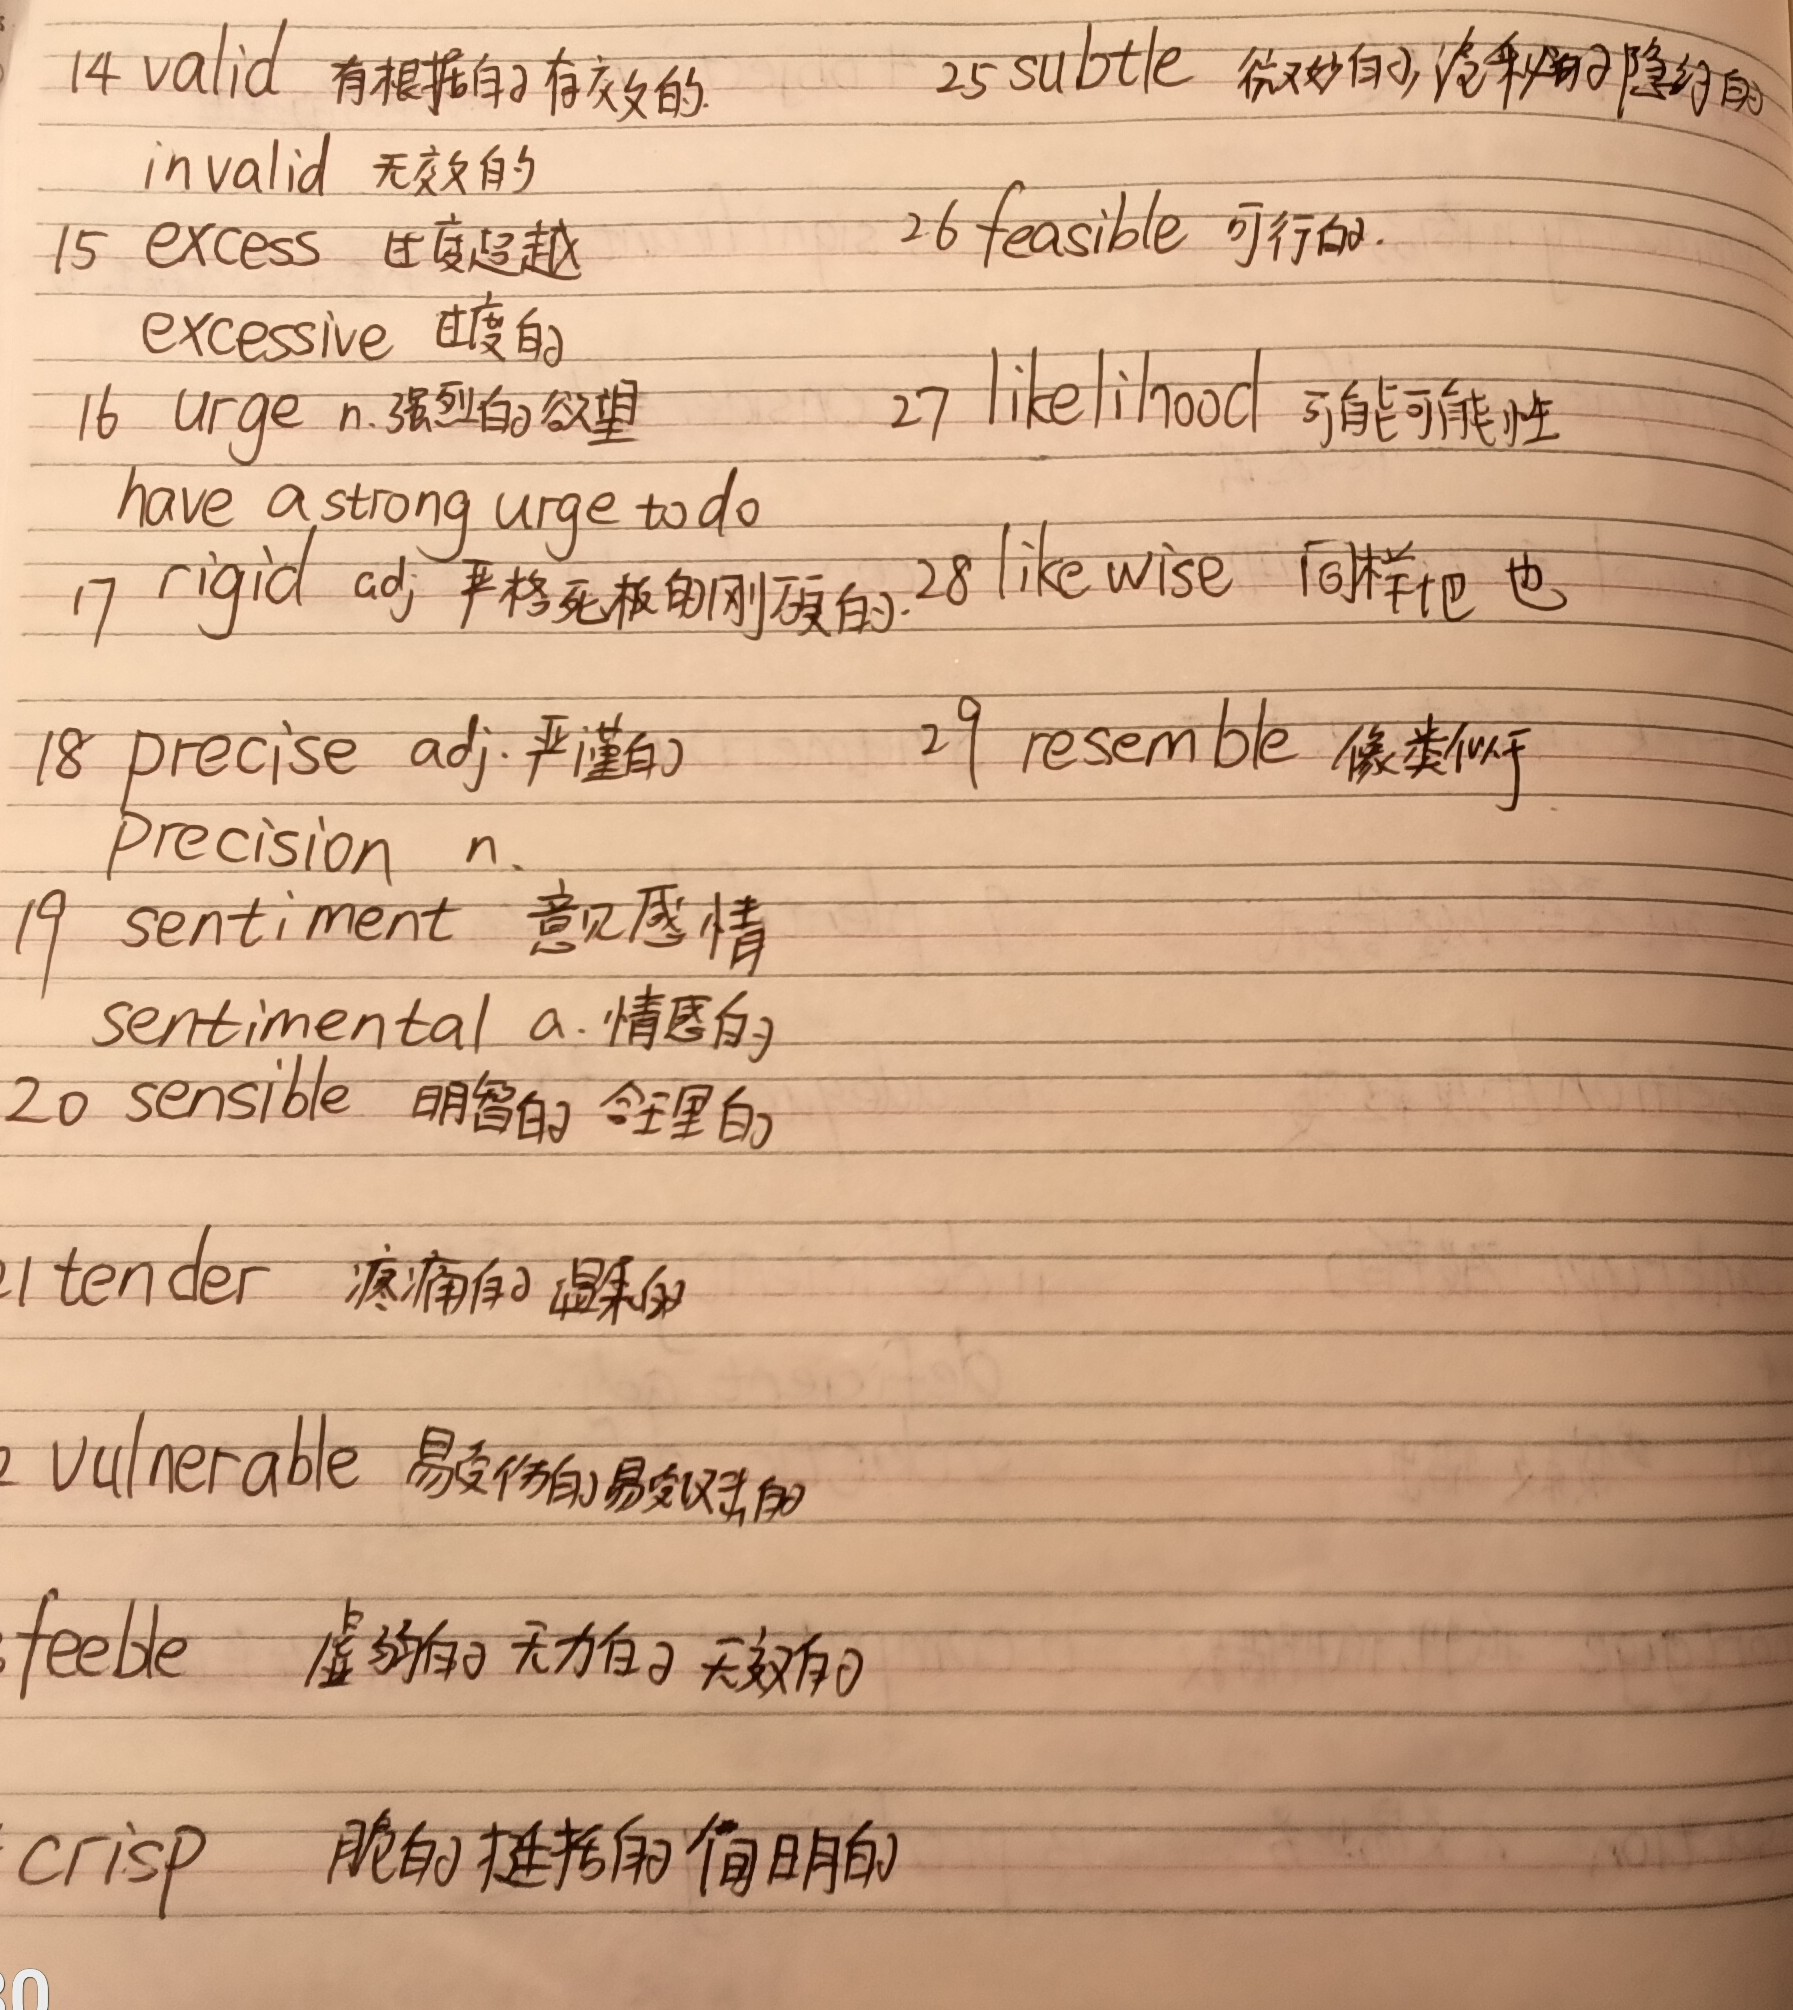 14 valid 有根据的 有效的.
invalid 无效的
15 excess 过度超越
excessive 过度的
16 urge n.强烈的欲望
have a strong urge to do
17 rigid adj 严格死板的刚硬的.
18 precise adj.严谨的
precision n.
19 sentiment 意见感情
sentimental a.情感的
20 sensible 明智的 合理的
1 tender 疼痛的 温柔的
2 vulnerable 易受伤的 易受攻击的
feeble 虚弱的 无力的 无效的
crisp 脆的 挺括的 简明的
25 subtle 微妙的, 隐约的
26 feasible 可行的.
27 likelihood 可能可能性
28 likewise 同样地 也
29 resemble 像类似于
30